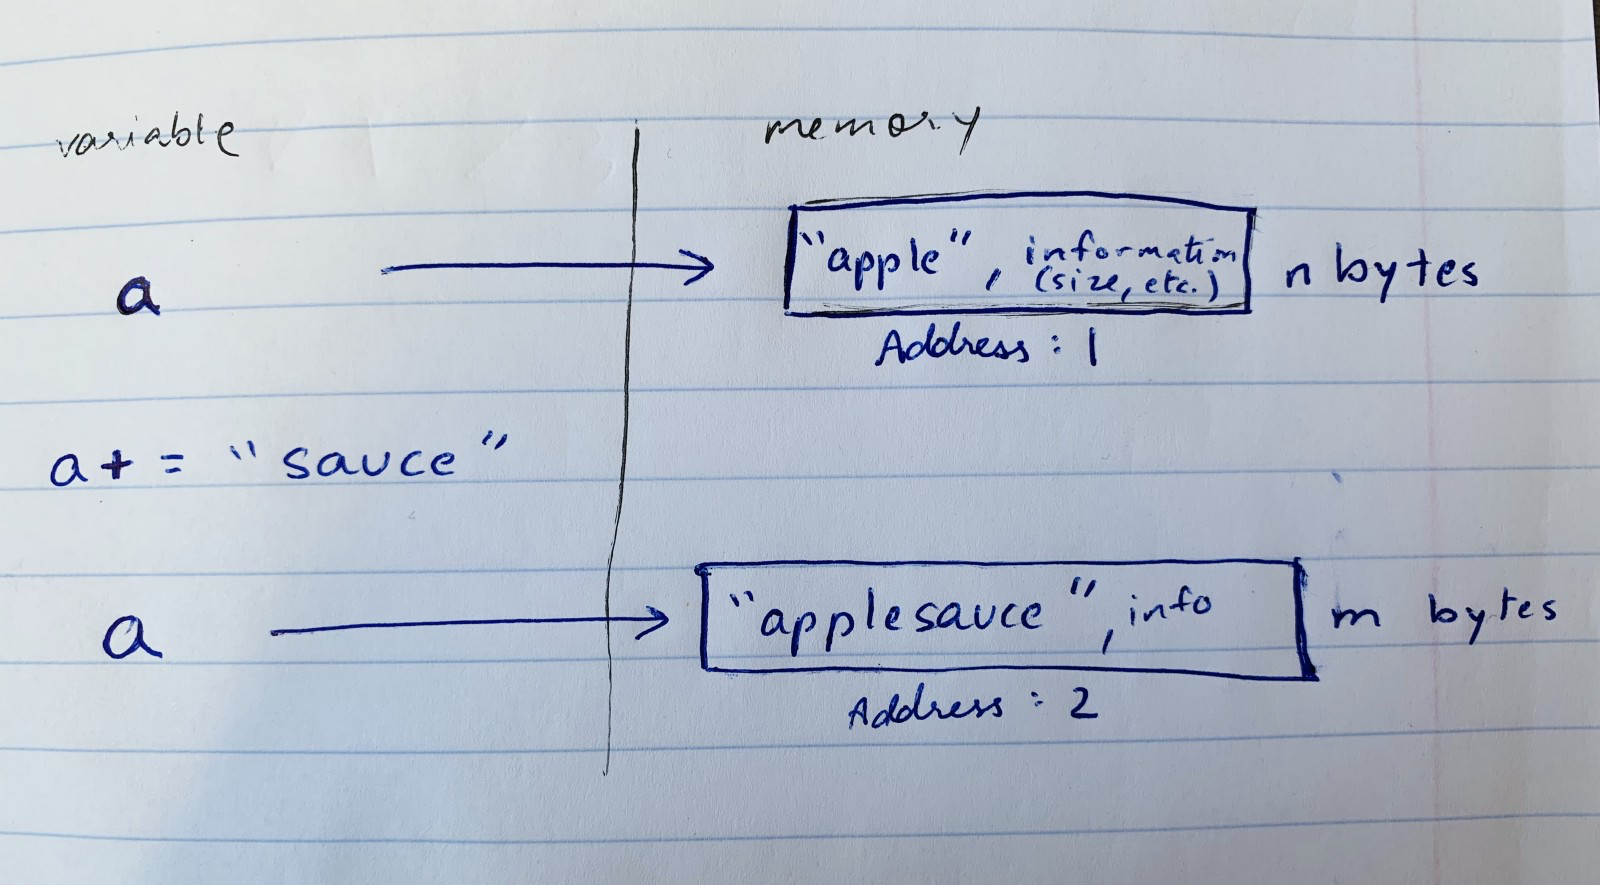 variable
memory
"apple", information
(size, etc.)
n bytes
a
Address : 1
a+ = "sauce"
a
"applesauce", info
m bytes
Address : 2